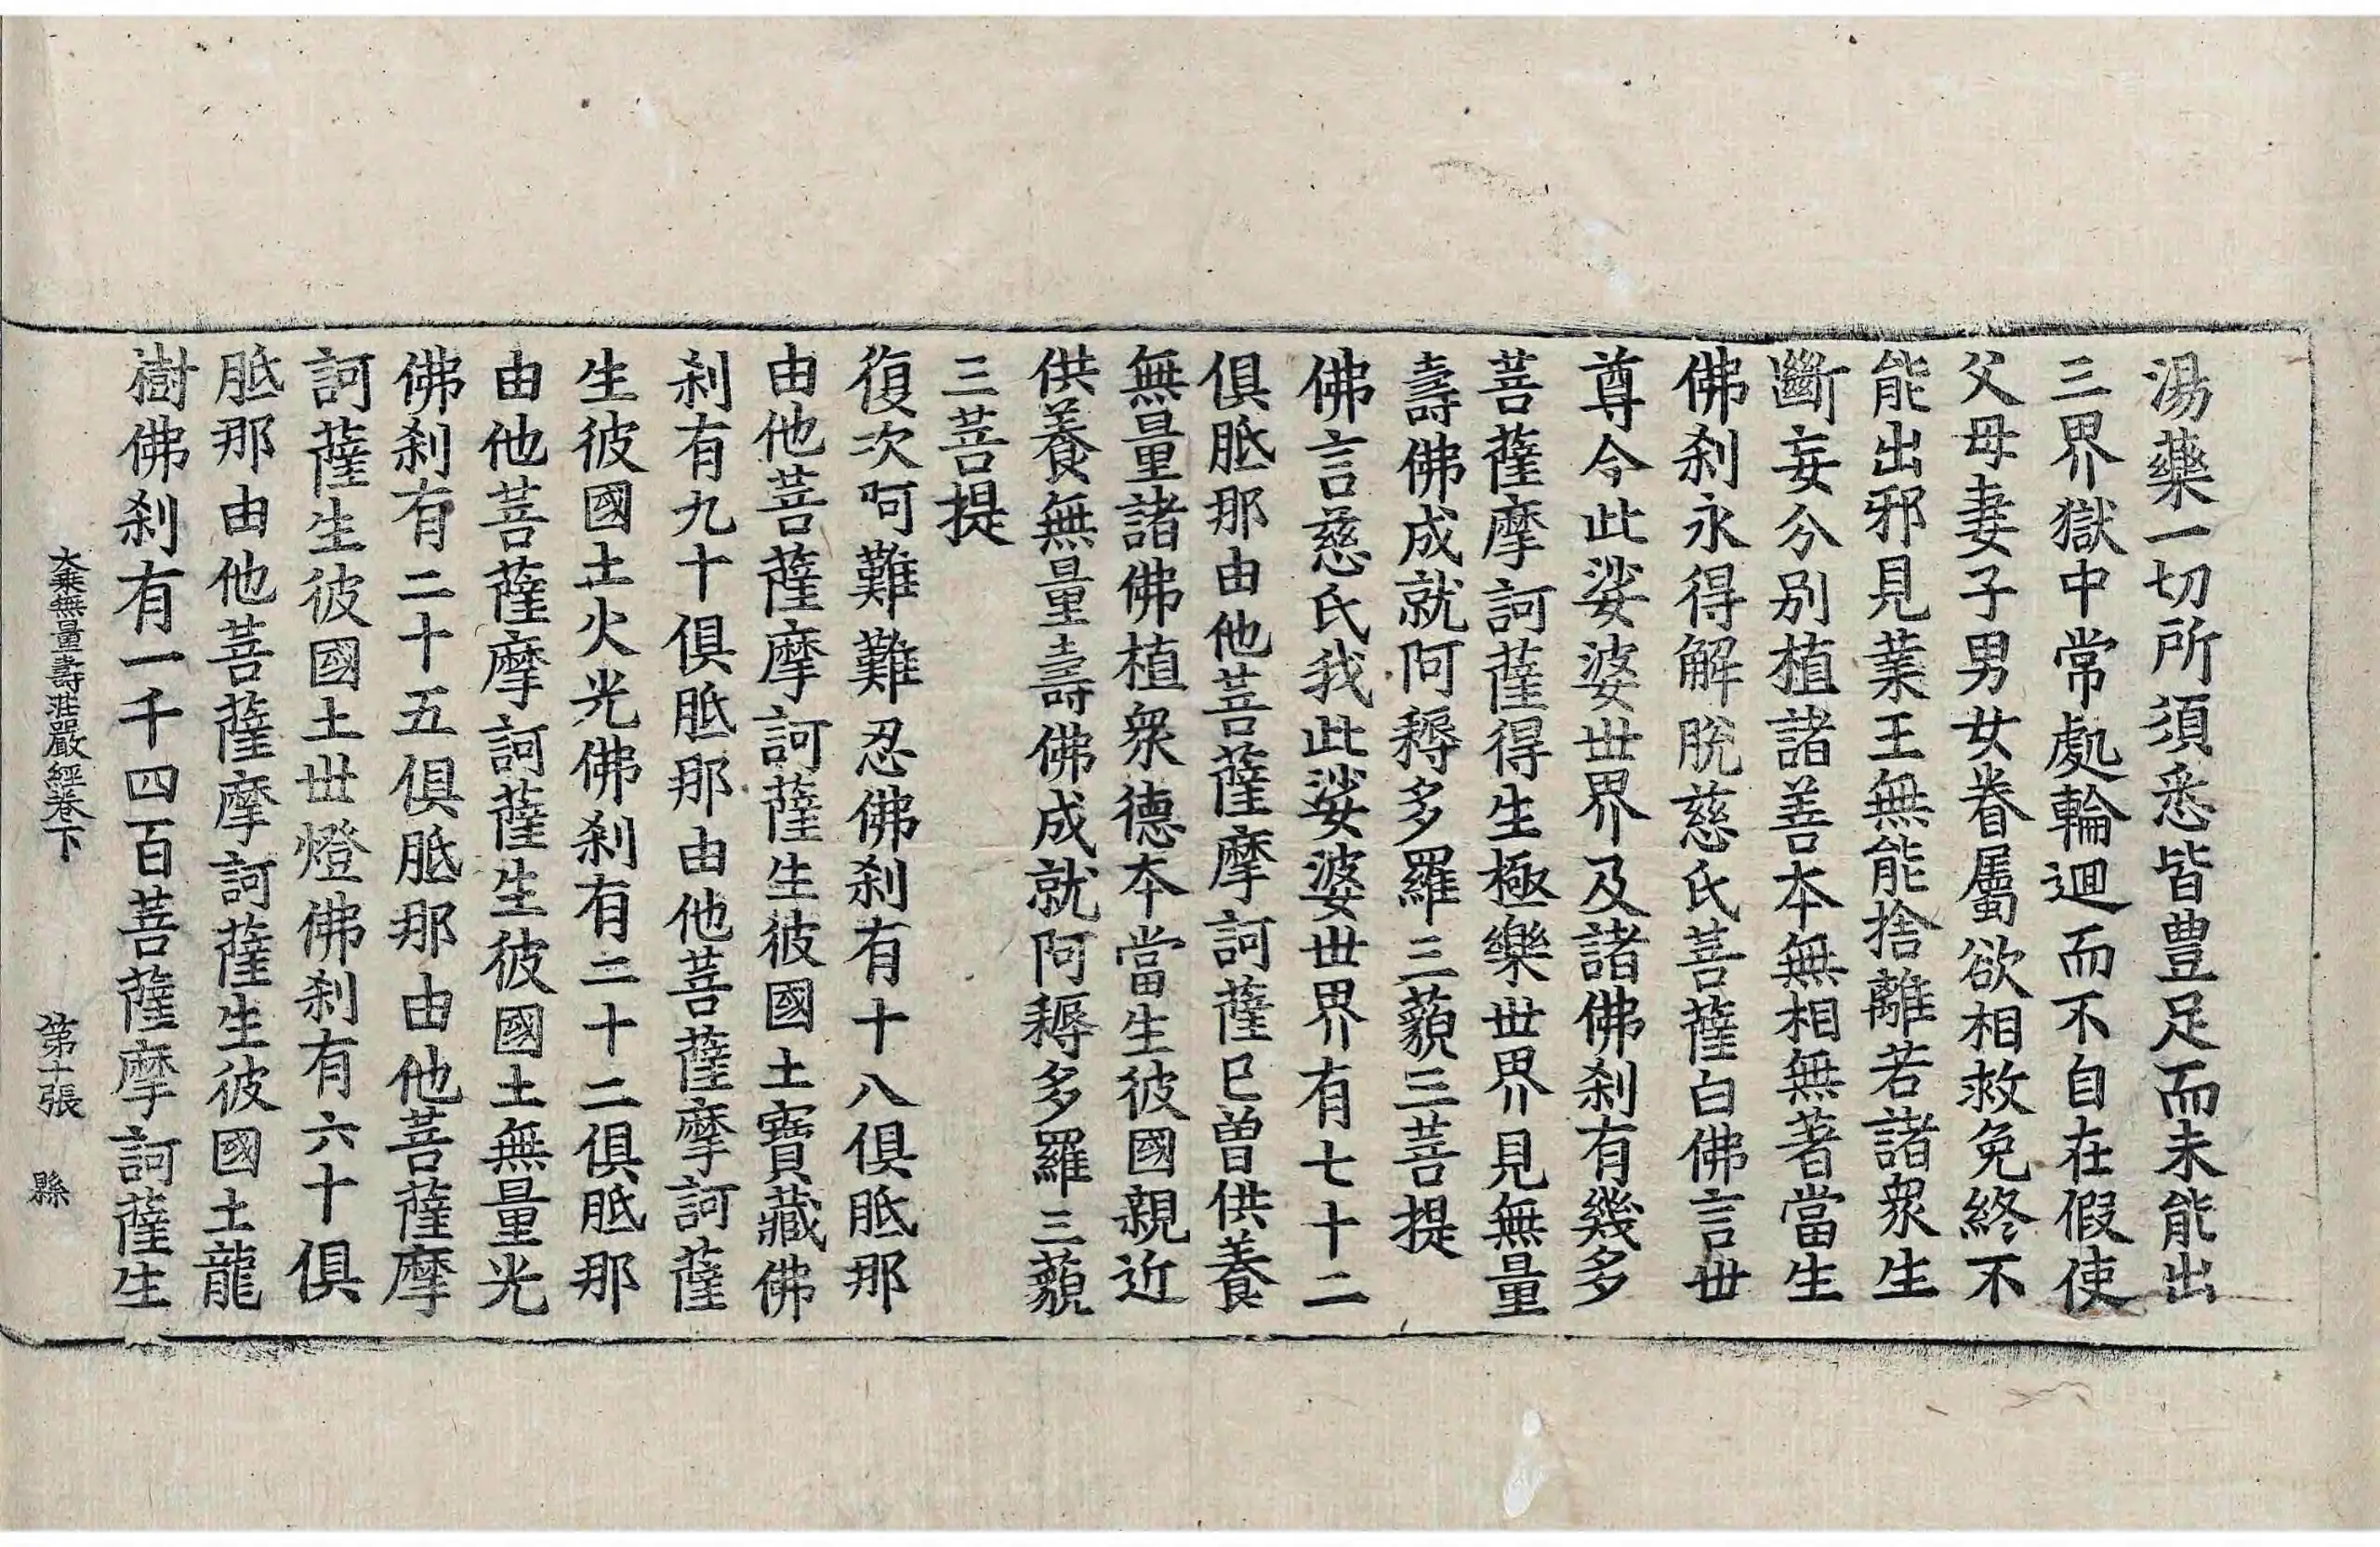 湯藥一切所須悉皆豊足而未能出
三界獄中常處輪迴而不自在假使
父母妻子男女眷屬欲相救免終不
能出邪見業王無能捨離若諸衆生
斷妄分别植諸善本無相無著當生
佛刹永得解脫慈氏菩薩白佛言世
尊今此娑婆世界及諸佛刹有幾多
菩薩摩訶薩得生極樂世界見無量
壽佛成就阿耨多羅三藐三菩提
佛言慈氏我此娑婆世界有七十二
俱胝那由他菩薩摩訶薩已曾供養
無量諸佛植衆德本當生彼國親近
供養無量壽佛成就阿耨多羅三藐
三菩提
復次阿難難忍佛刹有十八俱胝那
由他菩薩摩訶薩生彼國土寶藏佛
刹有九十俱胝那由他菩薩摩訶薩
生彼國土火光佛刹有二十二俱胝那
由他菩薩摩訶薩生彼國土無量光
佛刹有二十五俱胝那由他菩薩摩
訶薩生彼國土世燈佛刹有六十俱
胝那由他菩薩摩訶薩生彼國土龍
樹佛刹有一千四百菩薩摩訶薩生
大乘無量壽莊嚴經卷下 第十張 縣